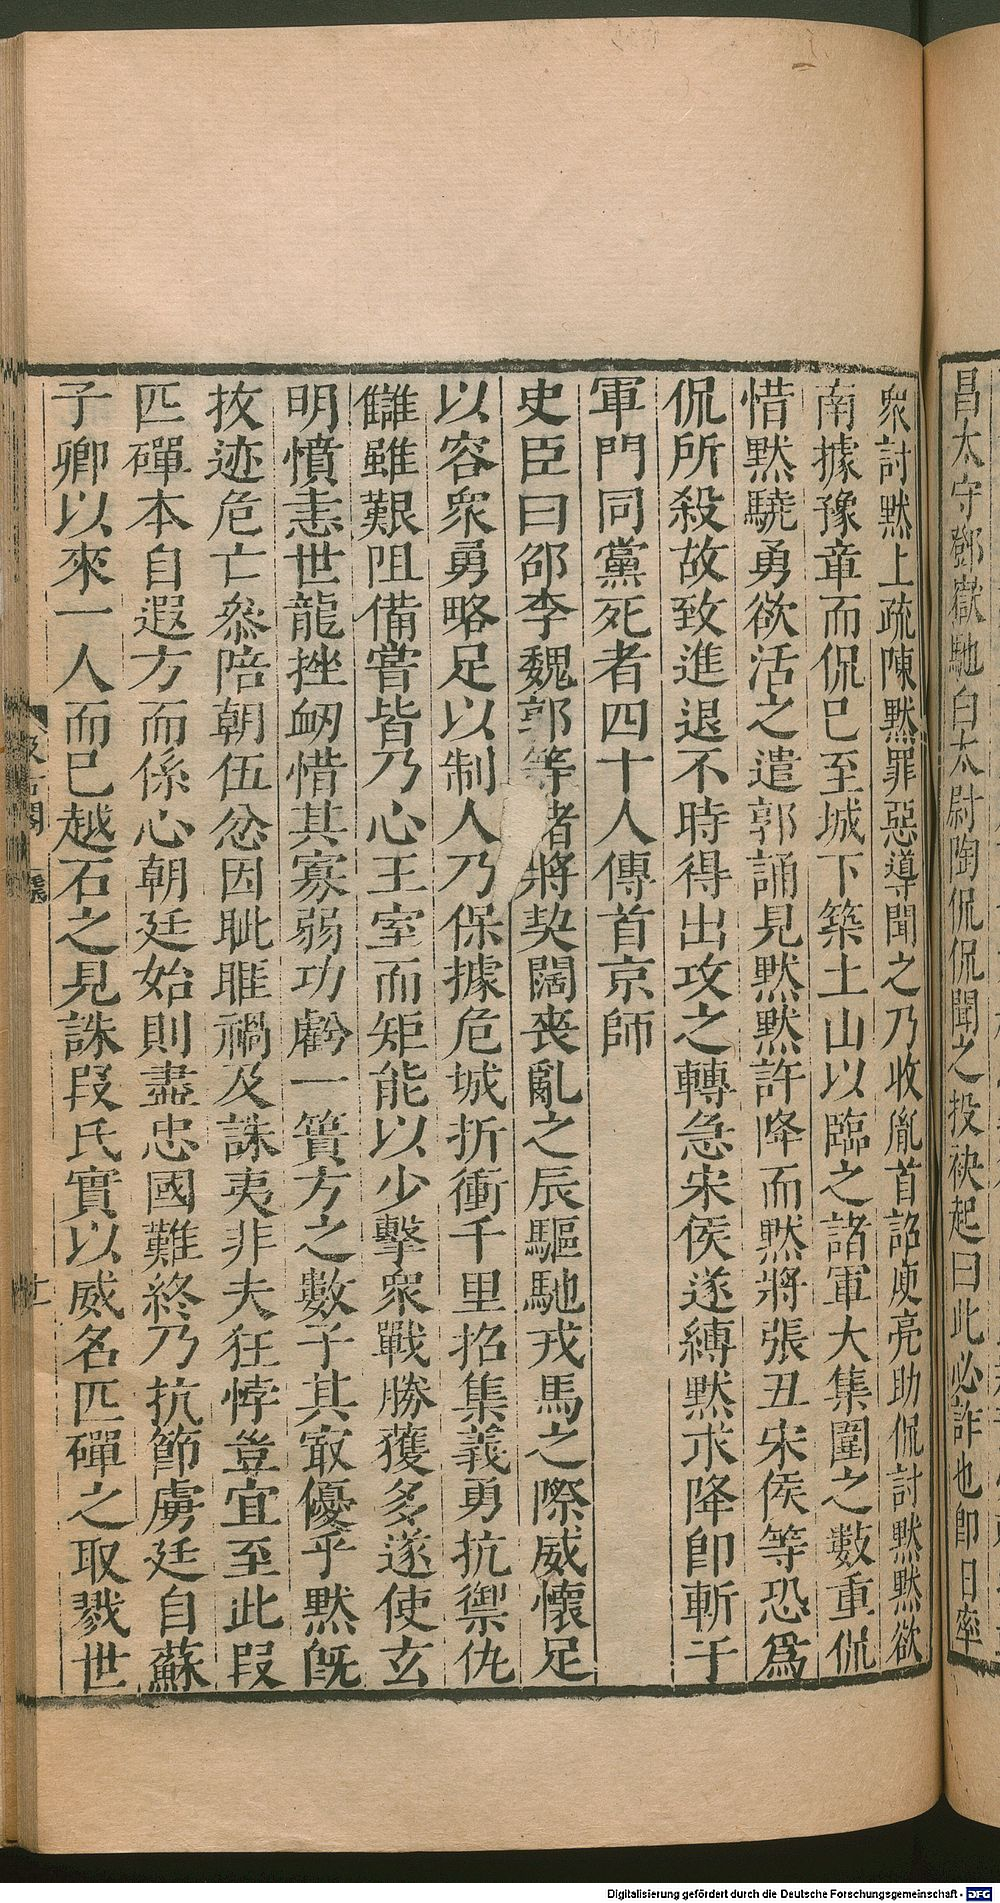 昌太守鄧嶽馳白太尉陶侃侃聞之投袂起曰此必詐也卽日率
衆討默上疏陳默罪惡導聞之乃收胤首詔庾亮助侃討默默欲
南據豫章而侃已至城下築土山以臨之諸軍大集圍之數重侃
惜默驍勇欲活之遣郭誦見默默許降而默將張丑宋侯等恐爲
侃所殺故致進退不時得出攻之轉急宋侯遂縛默求降卽斬于
軍門同黨死者四十人傳首京師
史臣曰邵李魏郭等諸將契闊喪亂之辰驅馳戎馬之際威懷足
以容衆勇略足以制人乃保據危城折衝千里招集義勇抗禦仇
讎雖艱阻備嘗皆乃心王室而矩能以少擊衆戰勝獲多遂使玄
明憤恚世龍挫衂惜其寡弱功虧一簣方之數子其最優乎默旣
拔迹危亡叅陪朝伍忿因眦睚禍及誅夷非夫狂悖豈宜至此段
匹磾本自遐方而係心朝廷始則盡忠國難終乃抗節虜廷自蘇
子卿以來一人而已越石之見誅段氏實以威名匹磾之取戮世
Digitalisierung gefördert durch die Deutsche Forschungsgemeinschaft - DFG